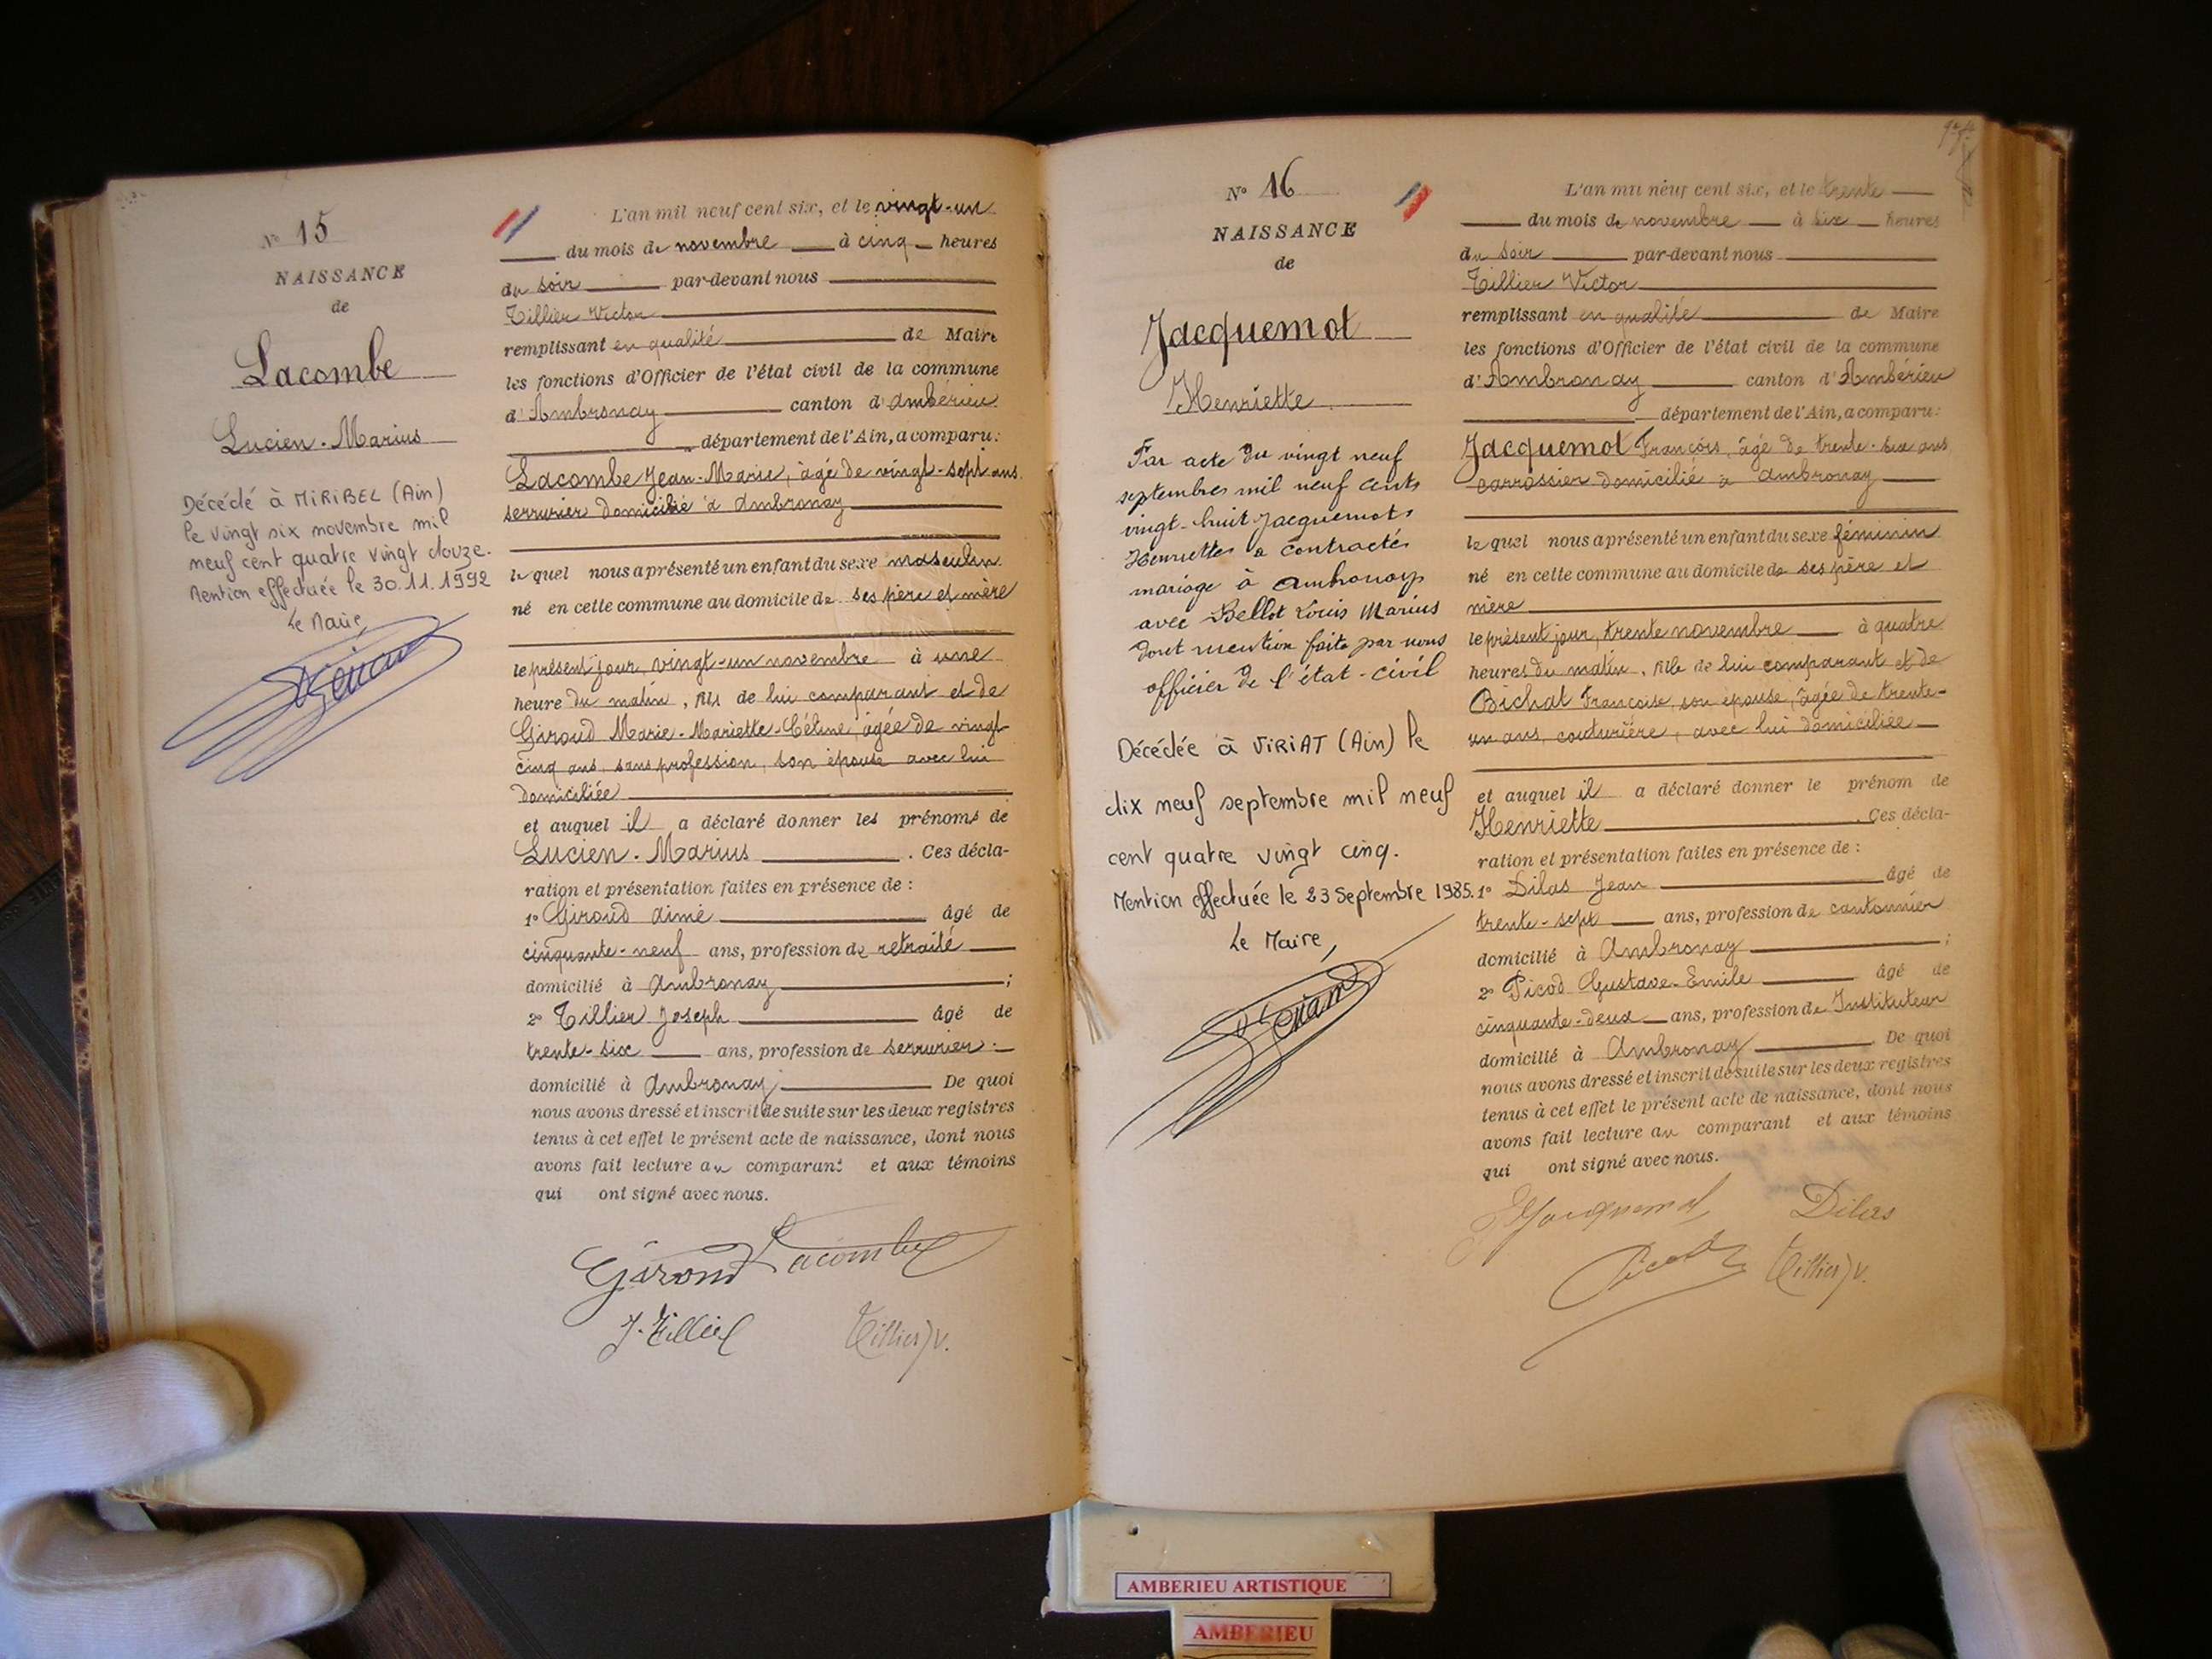 N° 15
NAISSANCE
de
Lacombe
Lucien-Marius
Décédé à MIRIBEL (Ain)
le vingt six novembre mil
neuf cent quatre vingt douze.
Mention effectuée le 30.11.1992
Le Maire,
L'an mil neuf cent six, et le vingt-un
du mois de novembre à cinq heures
du soir par-devant nous
Tillier Victor
remplissant en qualité de Maire
les fonctions d'Officier de l'état civil de la commune
d'Ambronay canton d'Ambérieu
département de l'Ain, a comparu:
Lacombe Jean-Marie, âgé de vingt-sept ans
serrurier domicilié à Ambronay
lequel nous a présenté un enfant du sexe masculin
né en cette commune au domicile de ses père et mère
le présent jour, vingt-un novembre à une
heure du matin, fils de lui comparant et de
Giroud Marie-Mariette-Céline, âgée de vingt-
cinq ans, sans profession, son épouse avec lui
domiciliée
et auquel il a déclaré donner les prénoms de
Lucien-Marius. Ces décla-
ration et présentation faites en présence de :
1° Giroud Aimé âgé de
cinquante-neuf ans, profession de retraité
domicilié à Ambronay ;
2° Tillier Joseph âgé de
trente-six ans, profession de serrurier
domicilié à Ambronay De quoi
nous avons dressé et inscrit de suite sur les deux registres
tenus à cet effet le présent acte de naissance, dont nous
avons fait lecture au comparant et aux témoins
qui ont signé avec nous.
Giroud Lacombe
J. Tillier Tillier V.
N° 16
NAISSANCE
de
Jacquemot
Henriette
Par acte du vingt neuf
septembre mil neuf cent
vingt-huit Jacquemot
Henriette a contracté
mariage à Ambronay
avec Bellot Louis Marius
dont mention faite par nous
officier de l'état-civil
Décédée à VIRIAT (Ain) le
dix neuf septembre mil neuf
cent quatre vingt cinq.
Mention effectuée le 23 Septembre 1985.
Le Maire,
L'an mil neuf cent six, et le trente
du mois de novembre à six heures
du soir par-devant nous
Tillier Victor
remplissant en qualité de Maire
les fonctions d'Officier de l'état civil de la commune
d'Ambronay canton d'Ambérieu
département de l'Ain, a comparu:
Jacquemot François, âgé de trente-six ans
carrossier domicilié à Ambronay
lequel nous a présenté un enfant du sexe féminin
né en cette commune au domicile de ses père et
mère
le présent jour, trente novembre à quatre
heures du matin, fille de lui comparant et de
Bichat Françoise, son épouse, âgée de trente-
un ans, couturière, avec lui domiciliée
et auquel il a déclaré donner le prénom de
Henriette. Ces décla-
ration et présentation faites en présence de :
1° Dilas Jean âgé de
trente-sept ans, profession de cantonnier
domicilié à Ambronay ;
2° Picod Gustave-Emile âgé de
cinquante-deux ans, profession de Instituteur
domicilié à Ambronay De quoi
nous avons dressé et inscrit de suite sur les deux registres
tenus à cet effet le présent acte de naissance, dont nous
avons fait lecture au comparant et aux témoins
qui ont signé avec nous.
Jacquemot Dilas
Picod Tillier V.
AMBERIEU ARTISTIQUE
AMBERIEU